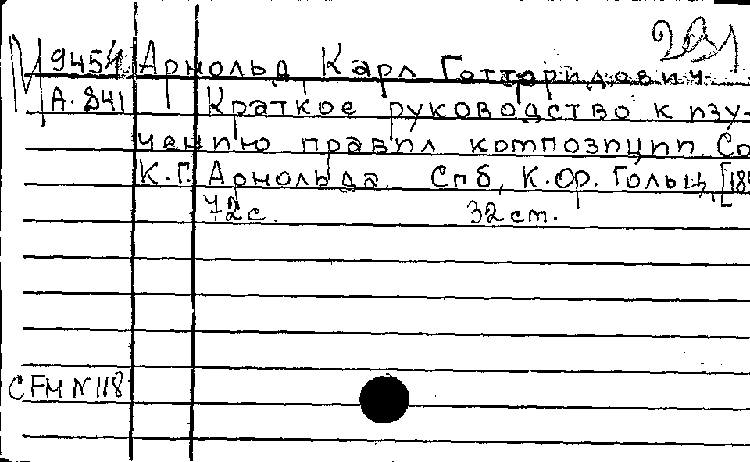 М 9454 Арнольд, Карл Готтфридович.
А. 841 Краткое руководство к изу-
чению правил композиции. Со
К. Г. Арнольда Спб, К. Ф. Гольц, [18
72 с. 32 cm.
CFM N 118